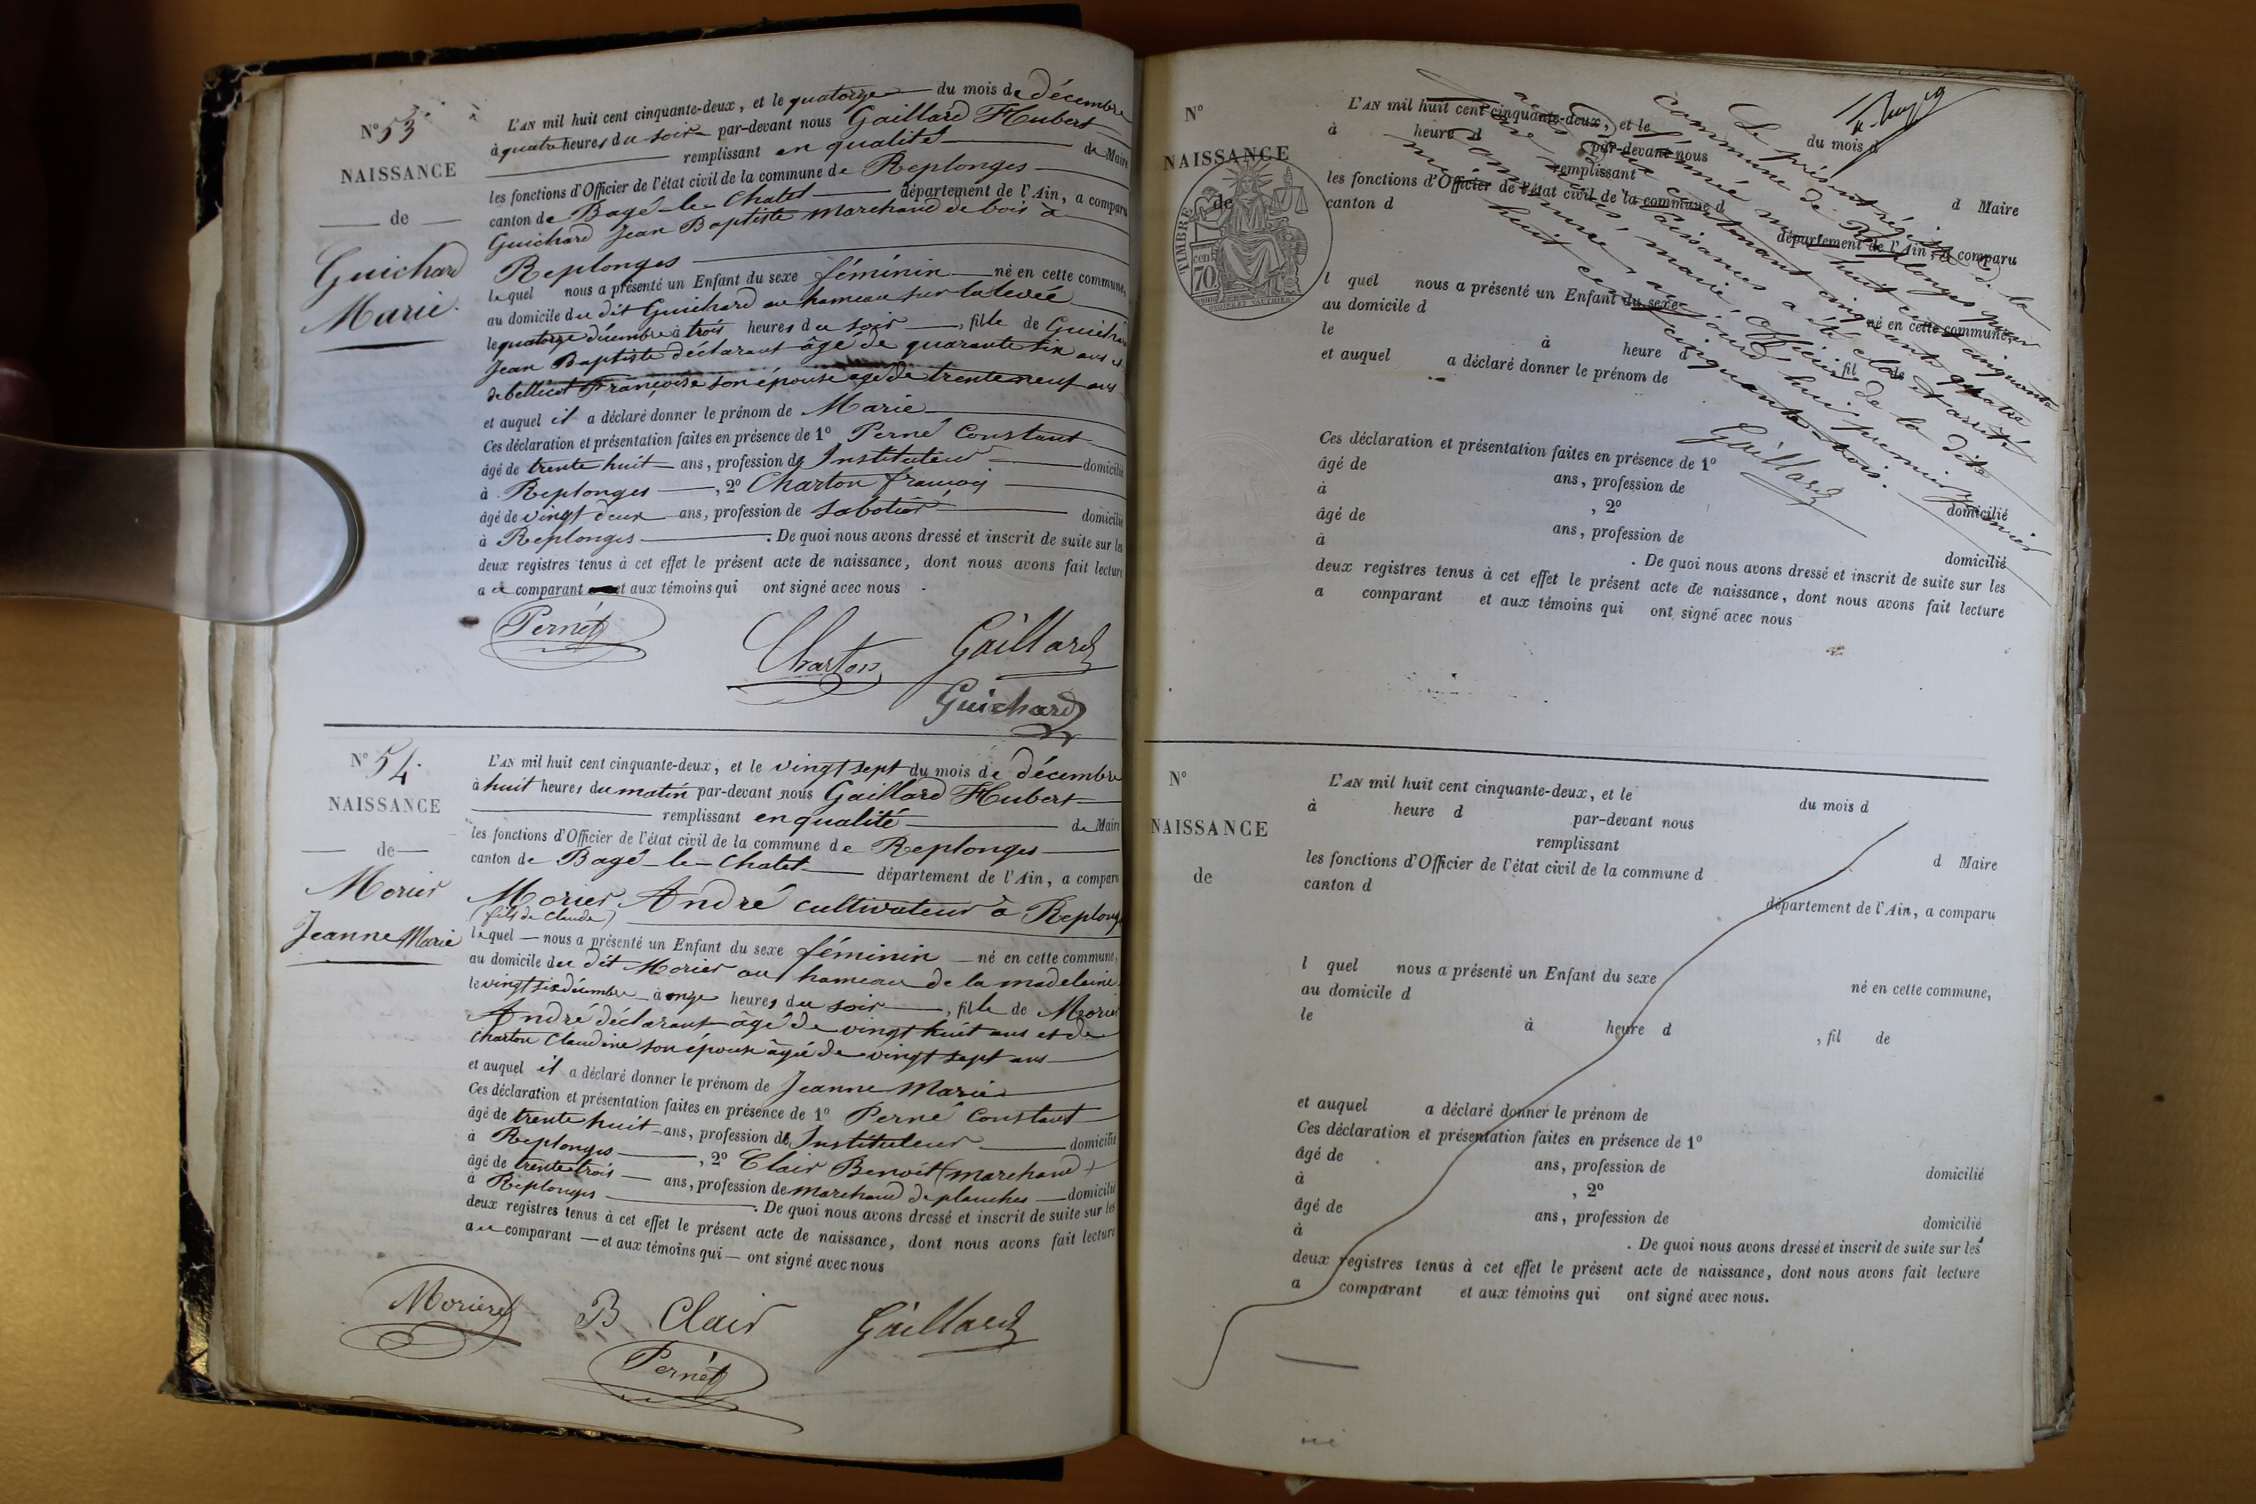 N° 53.
NAISSANCE
de
Guichard
Marie.
L'AN mil huit cent cinquante-deux, et le quatorze du mois de décembre
à quatre heures du soir par-devant nous Gaillard Hubert
remplissant en qualité de Maire
les fonctions d'Officier de l'état civil de la commune de Replonges
canton de Bagé-le-Chatel département de l'Ain, a comparu
Guichard Jean Baptiste marchand de bois à
Replonges
lequel nous a présenté un Enfant du sexe féminin né en cette commune,
au domicile du dit Guichard au hameau sur la levée
le quatorze décembre à trois heures du soir, fille de Guichard
Jean Baptiste déclarant âgé de quarante six ans et
de bellicot Françoise son épouse agé de trente neuf ans
et auquel il a déclaré donner le prénom de Marie
Ces déclaration et présentation faites en présence de 1° Perné Constant
âgé de trente huit ans, profession de Instituteur domicilié
à Replonges, 2° Charton françois
âgé de vingt deux ans, profession de sabotier domicilié
à Replonges. De quoi nous avons dressé et inscrit de suite sur les
deux registres tenus à cet effet le présent acte de naissance, dont nous avons fait lecture
au comparant et aux témoins qui ont signé avec nous.
Pernét
Charton
Gaillard
Guichard
N° 54.
NAISSANCE
de
Morier
Jeanne Marie
L'AN mil huit cent cinquante-deux, et le vingt sept du mois de décembre
à huit heures du matin par-devant nous Gaillard Hubert
remplissant en qualité de Maire
les fonctions d'Officier de l'état civil de la commune de Replonges
canton de Bagé-le-Chatel département de l'Ain, a comparu
Morier André cultivateur à Replonges
(fils de Claude)
lequel nous a présenté un Enfant du sexe féminin né en cette commune,
au domicile du dit Morier au hameau de la madeleine
le vingt six décembre à onze heures du soir, fille de Morier
André déclarant âgé de vingt huit ans et de
Charton Claudine son épouse âgée de vingt sept ans
et auquel il a déclaré donner le prénom de Jeanne Marie
Ces déclaration et présentation faites en présence de 1° Perné Constant
âgé de trente huit ans, profession de Instituteur domicilié
à Replonges, 2° Clair Benoit (marchand)
âgé de trente trois ans, profession de marchand de planches domicilié
à Replonges. De quoi nous avons dressé et inscrit de suite sur les
deux registres tenus à cet effet le présent acte de naissance, dont nous avons fait lecture
au comparant et aux témoins qui ont signé avec nous
Morier
B Clair
Gaillard
Pernét
N°
NAISSANCE
de
TIMBRE
70 cen
L'AN mil huit cent cinquante-deux, et le du mois d
à heure d par-devant nous
remplissant d Maire
les fonctions d'Officier de l'état civil de la commune d
canton d département de l'Ain, a comparu
l quel nous a présenté un Enfant du sexe né en cette commune,
au domicile d
le à heure d fil de
et auquel a déclaré donner le prénom de
Ces déclaration et présentation faites en présence de 1°
âgé de ans, profession de domicilié
à , 2°
âgé de ans, profession de domicilié
à . De quoi nous avons dressé et inscrit de suite sur les
deux registres tenus à cet effet le présent acte de naissance, dont nous avons fait lecture
a comparant et aux témoins qui ont signé avec nous
Le présent régistre de la
commune de Replonges pour
l'année mil huit cent cinquante
deux contenant cinquante quatre
actes de naissances a été clos et arrêté
par nous, maire, officier de la dite
commune, aujourd'hui premier janvier
mil huit cent cinquante-trois.
Gaillard
N°
NAISSANCE
de
L'AN mil huit cent cinquante-deux, et le du mois d
à heure d par-devant nous
remplissant d Maire
les fonctions d'Officier de l'état civil de la commune d
canton d département de l'Ain, a comparu
l quel nous a présenté un Enfant du sexe né en cette commune,
au domicile d
le à heure d , fil de
et auquel a déclaré donner le prénom de
Ces déclaration et présentation faites en présence de 1°
âgé de ans, profession de domicilié
à , 2°
âgé de ans, profession de domicilié
à . De quoi nous avons dressé et inscrit de suite sur les
deux registres tenus à cet effet le présent acte de naissance, dont nous avons fait lecture
a comparant et aux témoins qui ont signé avec nous.